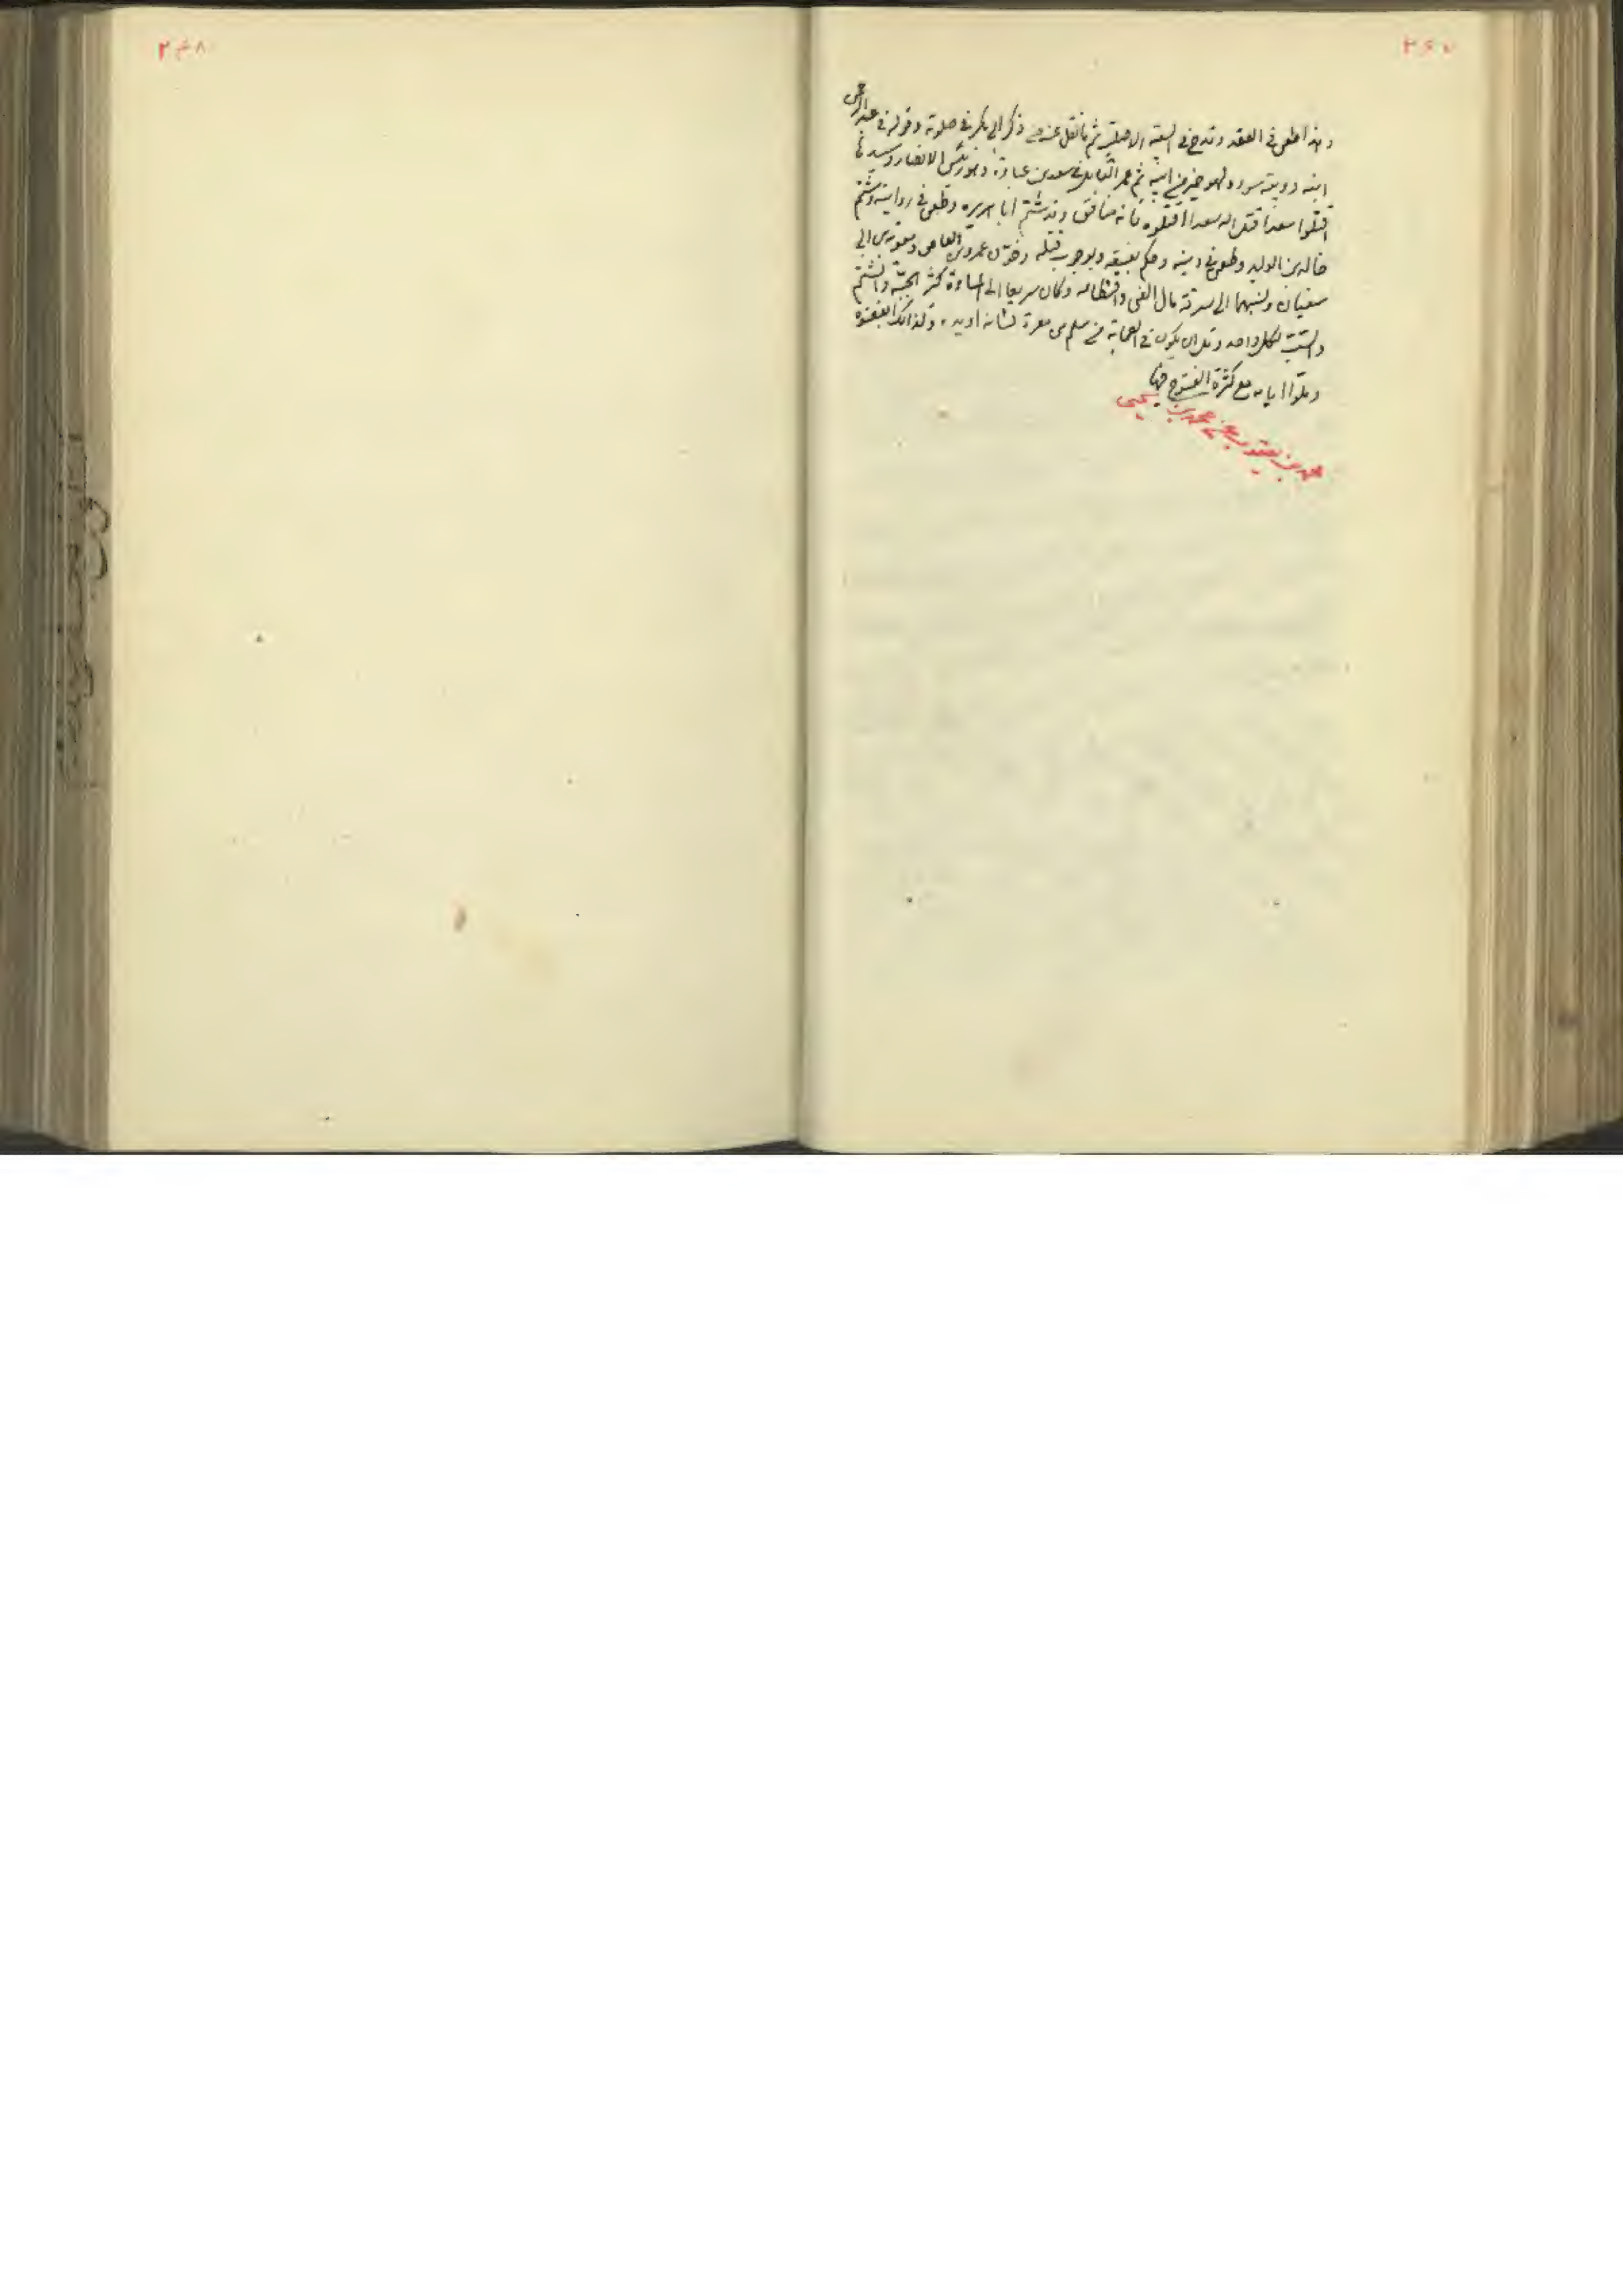 ٢٤٧
وهذا طعن في العقد وقدح في البيعة الاصلية ثم ما نقل عنه من ذكر ابي بكر في صلوته وقوله في عبد الرحمن
ابنه دويبة سوء ولهو خير من ابيه ثم عمر القايل في سعد بن عبادة وهو رئيس الانصار وسيدها
اقتلوا سعدا قتل الله سعدا اقتلوه فانه منافق وقد شتم ابا هريره وطعن في روايته وشتم
خالد بن الوليد وطعن في دينه وحكم بفسقه وبوجوب قتله وخون عمرو بن العاص ومعوية بن ابي
سفيان ونسبهما الى سرقة مال الفئ واقتطاعه وكان سريعا الى المساءة كثير الجبه والشتم
والسب لكل واحد وقل ان يكون في الصحابة من سلم من معرة لسانه او يده ولذلك ابغضوه
وملوا ايامه مع كثرة الفتوح فيها
محمد بن يعقوب عن محمد بن يحيى
٢٤٨